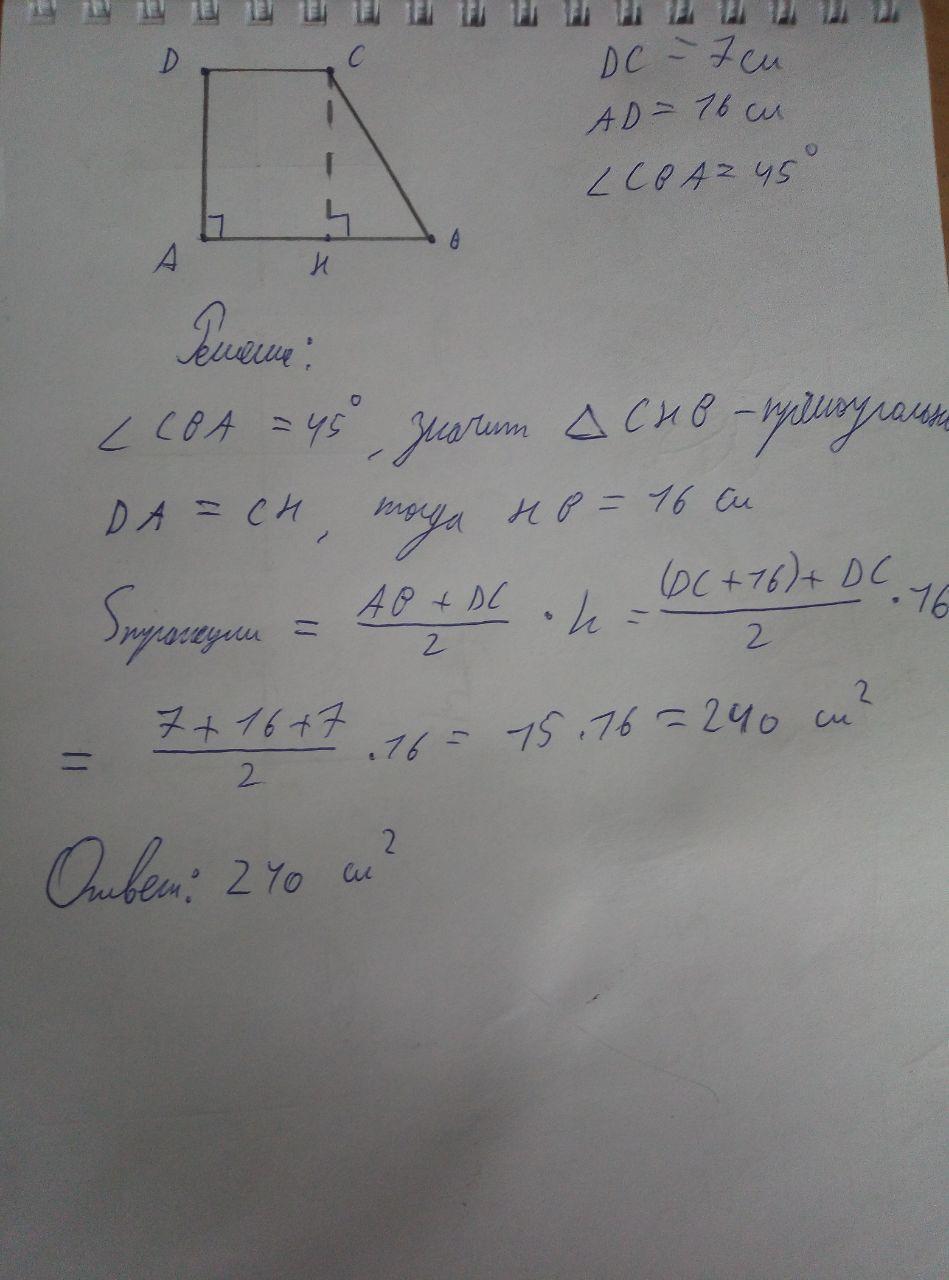 D C
DC = 7 см
AD = 16 см
∠CBA = 45°
A H B
Решение:
∠CBA = 45°, значит △CHB – прямоугольн
DA = CH, тогда HB = 16 см
Sтрапеции = (AB + DC)/2 · h = ((DC + 16) + DC)/2 · 16
= (7 + 16 + 7)/2 · 16 = 15 · 16 = 240 см²
Ответ: 240 см²